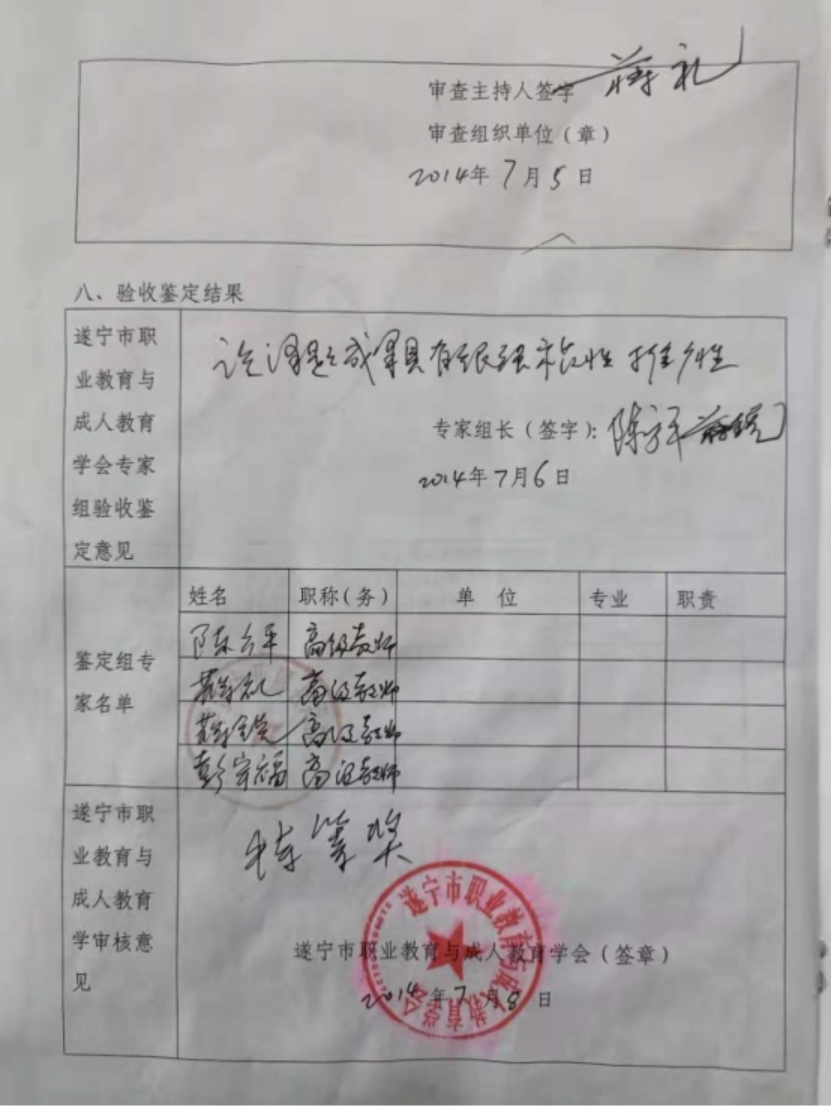 审查主持人签字 蒋礼
审查组织单位（章）
2014年7月5日
八、验收鉴定结果
遂宁市职
业教育与
成人教育
学会专家
组验收鉴
定意见
该课题成果具有很强示范性 推广性
专家组长（签字）：陈
2014年7月6日
鉴定组专
家名单
姓名 职称（务） 单 位 专业 职责
陈 平 高级教师
蒋礼 高级教师
蒋 高级教师
彭 福 高级教师
遂宁市职
业教育与
成人教育
学审核意
见
特等奖
遂宁市职业教育与成人教育学会
遂宁市职业教育与成人教育学会（签章）
2014年7月8日